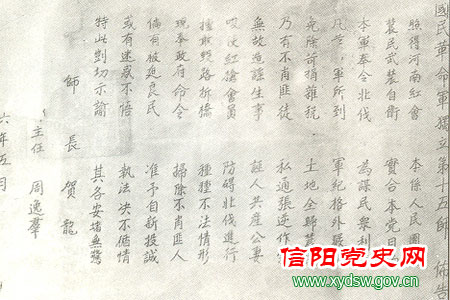 國民革命軍獨立第十五師 佈告
照得河南紅會 本係人民團
農民武裝自衛 實合本黨日
本軍奉令北伐 為謀民眾利
軍所到 軍紀格外嚴
免除苛捐雜 土地全歸農
乃有不肖匪徒 私通張逆作
無故造謠生事 誣人共產公妻
唆使紅槍會員 防碍北伐進行
擅敢毀路拆橋 種種不法情形
現奉政府命令 掃除不肖匪人
倘有被迫良民 准予自新投誠
或有迷惑不悟 執法決不循情
特此剴切示諭 其各安堵無驚
師長 賀龍
主任 周逸羣
六年五月
信阳党史网
www.xydsw.gov.cn